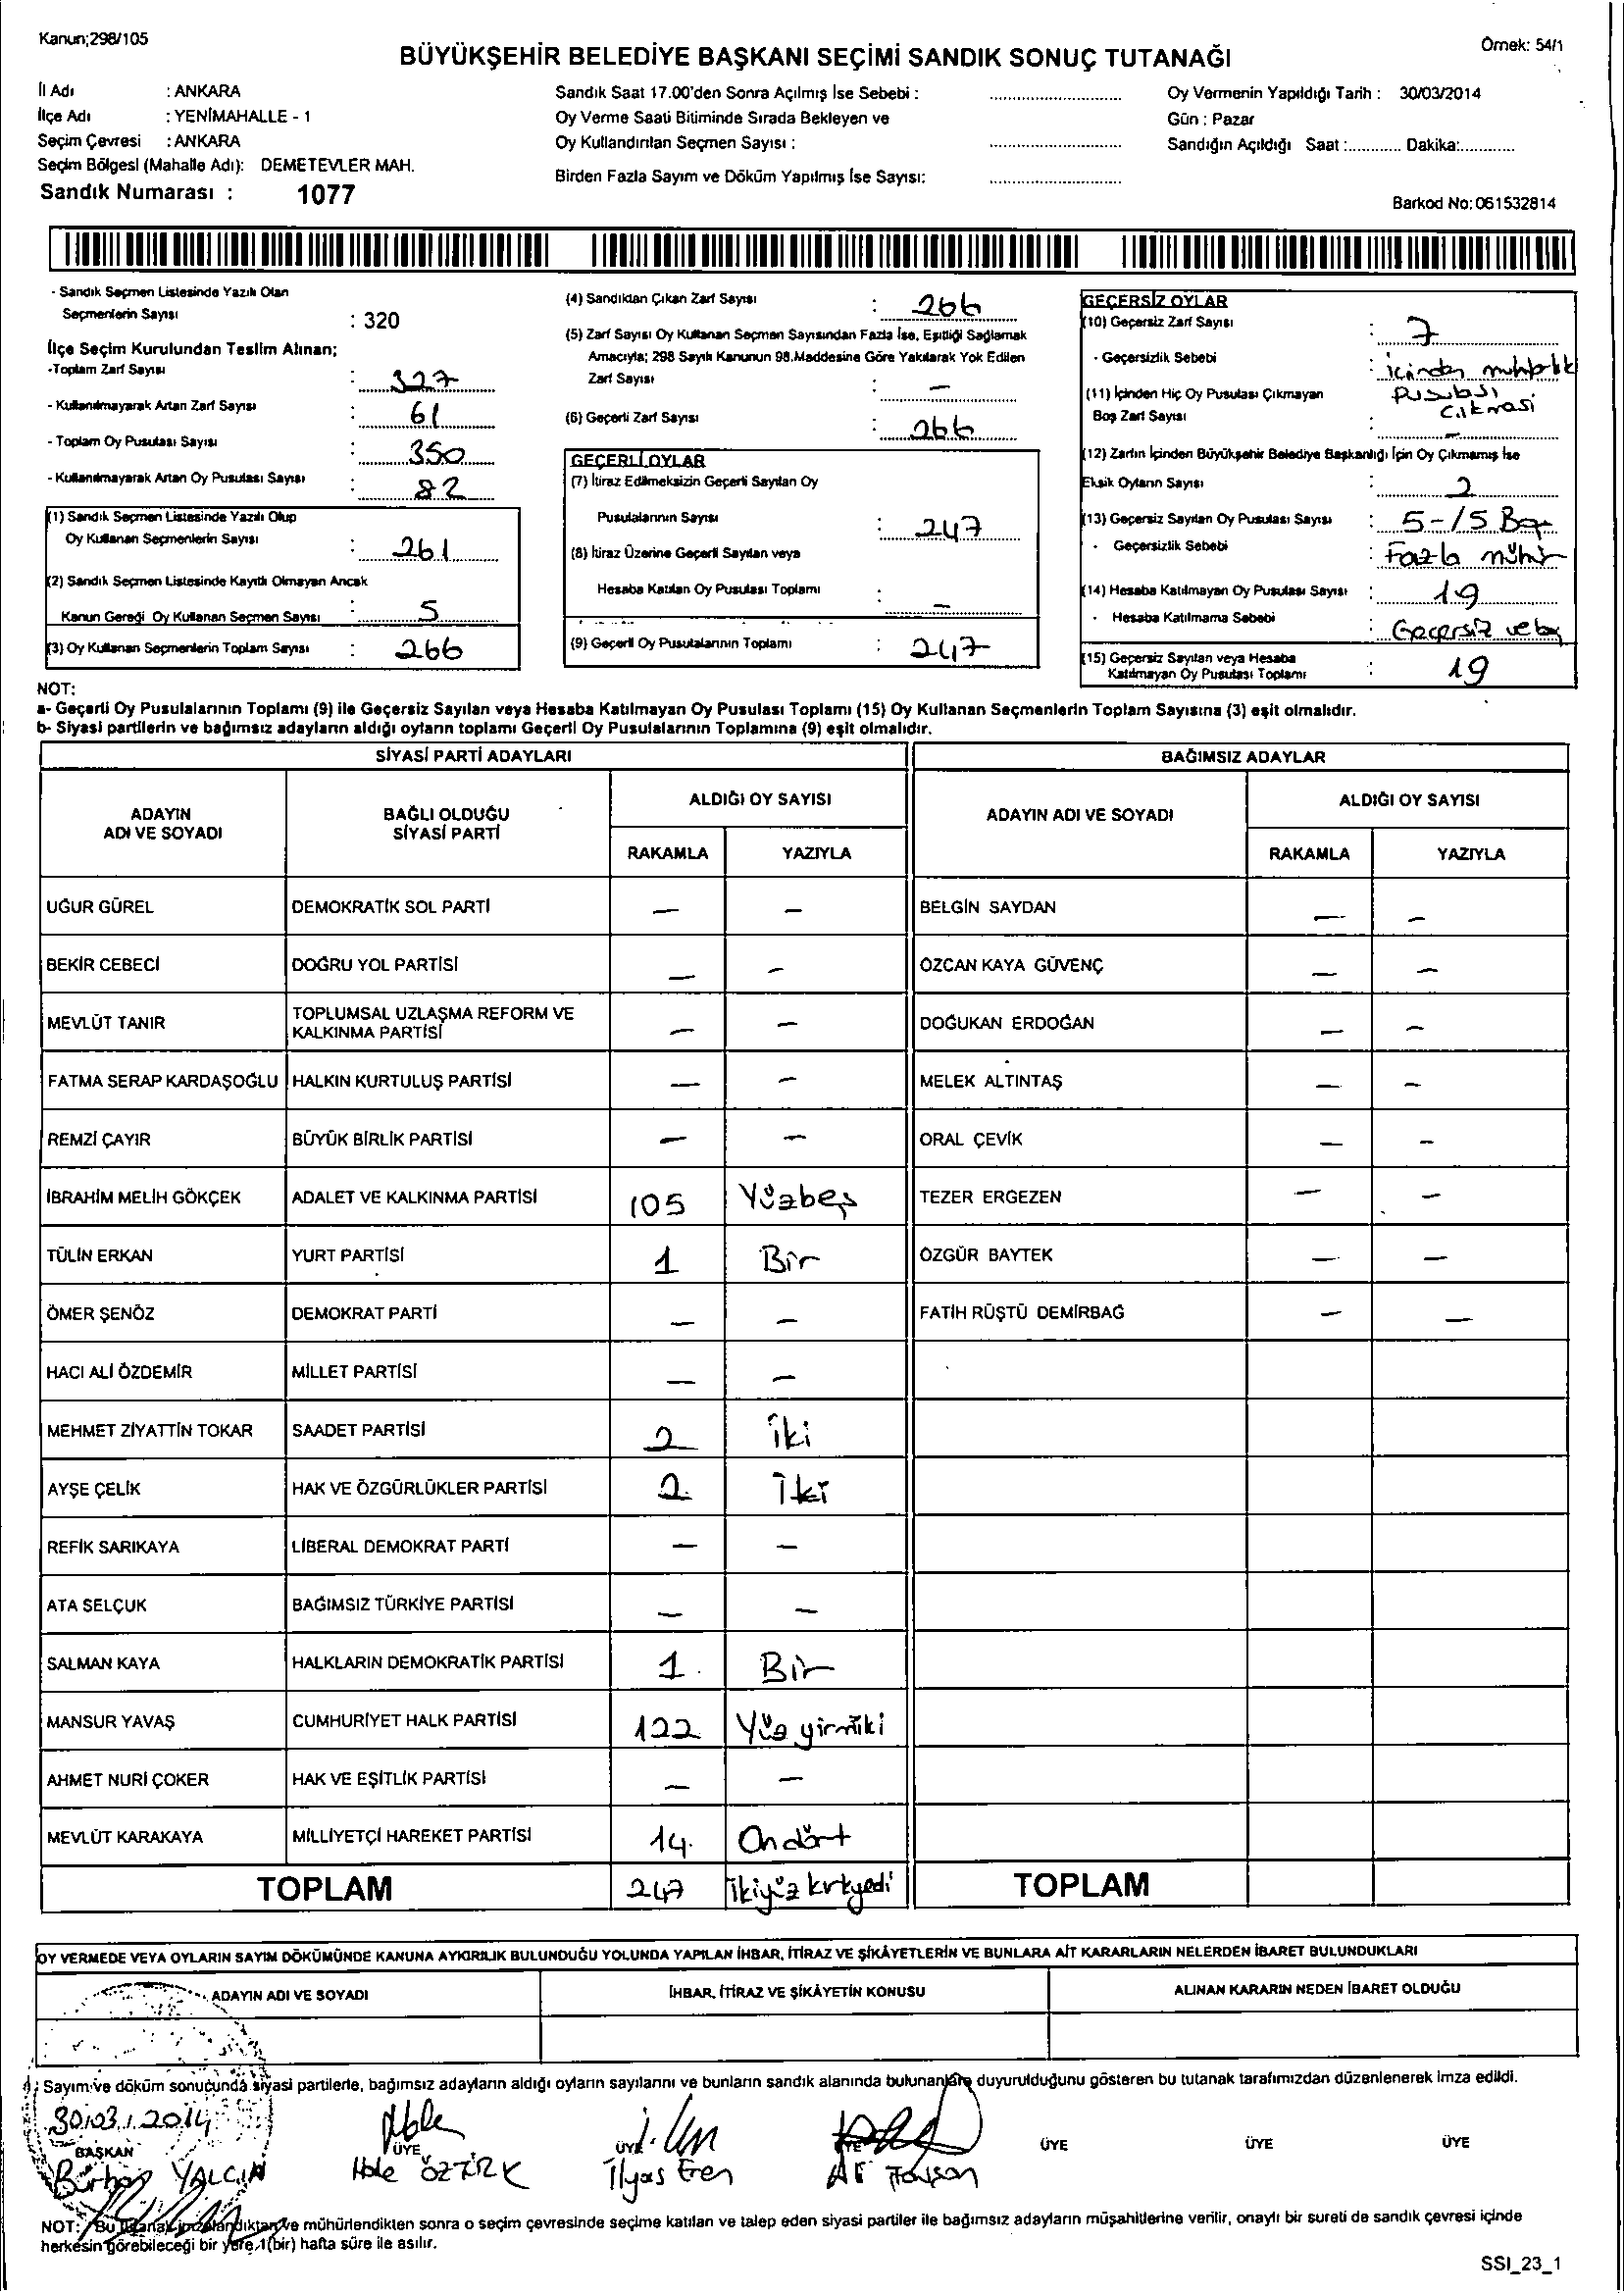 Kanun;298/105
Örnek: 54/1
BÜYÜKŞEHİR BELEDİYE BAŞKANI SEÇİMİ SANDIK SONUÇ TUTANAĞI
İl Adı : ANKARA
İlçe Adı : YENİMAHALLE - 1
Seçim Çevresi : ANKARA
Seçim Bölgesi (Mahalle Adı): DEMETEVLER MAH.
Sandık Numarası : 1077
Sandık Saat 17.00'den Sonra Açılmış İse Sebebi :
Oy Verme Saati Bitiminde Sırada Bekleyen ve
Oy Kullandırılan Seçmen Sayısı :
Birden Fazla Sayım ve Döküm Yapılmış İse Sayısı:
Oy Vermenin Yapıldığı Tarih : 30/03/2014
Gün : Pazar
Sandığın Açıldığı Saat :............ Dakika:............
Barkod No: 061532814
- Sandık Seçmen Listesinde Yazılı Olan
Seçmenlerin Sayısı : 320
İlçe Seçim Kurulundan Teslim Alınan;
-Toplam Zarf Sayısı : 327
- Kullanılmayarak Artan Zarf Sayısı : 61
- Toplam Oy Pusulası Sayısı : 350
- Kullanılmayarak Artan Oy Pusulası Sayısı : 82
(1) Sandık Seçmen Listesinde Yazılı Olup
Oy Kullanan Seçmenlerin Sayısı : 261
(2) Sandık Seçmen Listesinde Kayıtlı Olmayan Ancak
Kanun Gereği Oy Kullanan Seçmen Sayısı : 5
(3) Oy Kullanan Seçmenlerin Toplam Sayısı : 266
(4) Sandıktan Çıkan Zarf Sayısı : 266
(5) Zarf Sayısı Oy Kullanan Seçmen Sayısından Fazla İse, Eşitliği Sağlamak
Amacıyla; 298 Sayılı Kanunun 98.Maddesine Göre Yakılarak Yok Edilen
Zarf Sayısı : —
(6) Geçerli Zarf Sayısı : 266
GEÇERLİ OYLAR
(7) İtiraz Edilmeksizin Geçerli Sayılan Oy
Pusulalarının Sayısı : 247
(8) İtiraz Üzerine Geçerli Sayılan veya
Hesaba Katılan Oy Pusulası Toplamı : —
(9) Geçerli Oy Pusulalarının Toplamı : 247
GEÇERSİZ OYLAR
(10) Geçersiz Zarf Sayısı : 7
- Geçersizlik Sebebi : içinden
Pusulası
çıkması
(11) İçinden Hiç Oy Pusulası Çıkmayan
Boş Zarf Sayısı : —
(12) Zarfın İçinden Büyükşehir Belediye Başkanlığı İçin Oy Çıkmamış İse
Eksik Oyların Sayısı : 2
(13) Geçersiz Sayılan Oy Pusulası Sayısı : 5-/5
- Geçersizlik Sebebi : Fazla mühür
(14) Hesaba Katılmayan Oy Pusulası Sayısı : 19
- Hesaba Katılmama Sebebi : Geçersiz ve
(15) Geçersiz Sayılan veya Hesaba
Katılmayan Oy Pusulası Toplamı : 19
NOT:
a- Geçerli Oy Pusulalarının Toplamı (9) ile Geçersiz Sayılan veya Hesaba Katılmayan Oy Pusulası Toplamı (15) Oy Kullanan Seçmenlerin Toplam Sayısına (3) eşit olmalıdır.
b- Siyasi partilerin ve bağımsız adayların aldığı oyların toplamı Geçerli Oy Pusulalarının Toplamına (9) eşit olmalıdır.
SİYASİ PARTİ ADAYLARI BAĞIMSIZ ADAYLAR
ADAYIN
ADI VE SOYADI
BAĞLI OLDUĞU
SİYASİ PARTİ
ALDIĞI OY SAYISI
RAKAMLA YAZIYLA
ADAYIN ADI VE SOYADI
ALDIĞI OY SAYISI
RAKAMLA YAZIYLA
UĞUR GÜREL DEMOKRATİK SOL PARTİ — — BELGİN SAYDAN — —
BEKİR CEBECİ DOĞRU YOL PARTİSİ — — ÖZCAN KAYA GÜVENÇ — —
MEVLÜT TANIR TOPLUMSAL UZLAŞMA REFORM VE
KALKINMA PARTİSİ — — DOĞUKAN ERDOĞAN — —
FATMA SERAP KARDAŞOĞLU HALKIN KURTULUŞ PARTİSİ — — MELEK ALTINTAŞ — —
REMZİ ÇAYIR BÜYÜK BİRLİK PARTİSİ — — ORAL ÇEVİK — —
İBRAHİM MELİH GÖKÇEK ADALET VE KALKINMA PARTİSİ 105 Yüzbeş TEZER ERGEZEN — —
TÜLİN ERKAN YURT PARTİSİ 1 Bir ÖZGÜR BAYTEK — —
ÖMER ŞENÖZ DEMOKRAT PARTİ — — FATİH RÜŞTÜ DEMİRBAĞ — —
HACI ALİ ÖZDEMİR MİLLET PARTİSİ — —
MEHMET ZİYATTİN TOKAR SAADET PARTİSİ 2 İki
AYŞE ÇELİK HAK VE ÖZGÜRLÜKLER PARTİSİ 2 İki
REFİK SARIKAYA LİBERAL DEMOKRAT PARTİ — —
ATA SELÇUK BAĞIMSIZ TÜRKİYE PARTİSİ — —
SALMAN KAYA HALKLARIN DEMOKRATİK PARTİSİ 1 Bir
MANSUR YAVAŞ CUMHURİYET HALK PARTİSİ 122 Yüz yirmiiki
AHMET NURİ ÇOKER HAK VE EŞİTLİK PARTİSİ — —
MEVLÜT KARAKAYA MİLLİYETÇİ HAREKET PARTİSİ 14 Ondört
TOPLAM 247 İkiyüz kırkyedi TOPLAM
OY VERMEDE VEYA OYLARIN SAYIM DÖKÜMÜNDE KANUNA AYKIRILIK BULUNDUĞU YOLUNDA YAPILAN İHBAR, İTİRAZ VE ŞİKÂYETLERİN VE BUNLARA AİT KARARLARIN NELERDEN İBARET BULUNDUKLARI
ADAYIN ADI VE SOYADI İHBAR, İTİRAZ VE ŞİKÂYETİN KONUSU ALINAN KARARIN NEDEN İBARET OLDUĞU
Sayım ve döküm sonucunda siyasi partilerle, bağımsız adayların aldığı oyların sayılarını ve bunların sandık alanında bulunanlara duyurulduğunu gösteren bu tutanak tarafımızdan düzenlenerek imza edildi.
30/03/2014
BAŞKAN ÜYE ÜYE ÜYE ÜYE ÜYE ÜYE
Burhan YALÇIN Hale ÖZTÜRK İlyas Eren Ali
NOT: Bu tutanak imzalandıktan ve mühürlendikten sonra o seçim çevresinde seçime katılan ve talep eden siyasi partiler ile bağımsız adayların müşahitlerine verilir, onaylı bir sureti de sandık çevresi içinde
herkesin görebileceği bir yere 1(bir) hafta süre ile asılır.
SSI_23_1